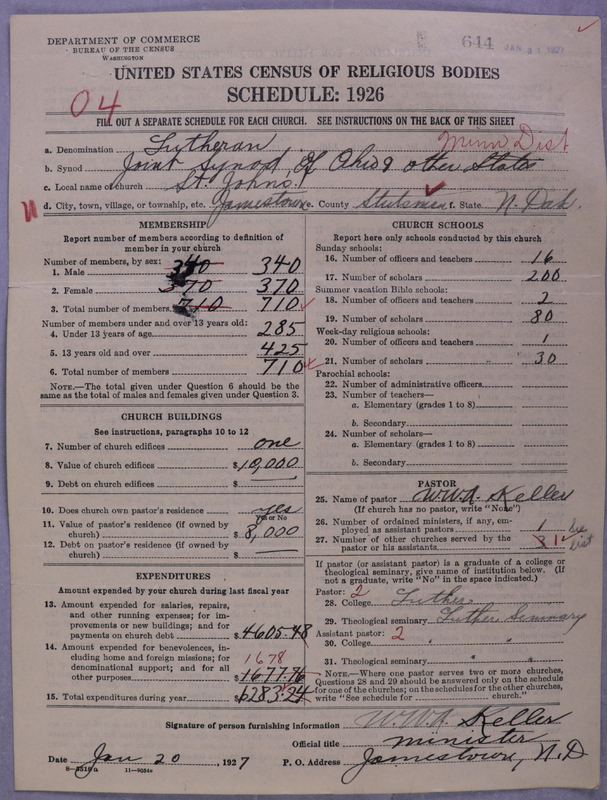 DEPARTMENT OF COMMERCE
BUREAU OF THE CENSUS
WASHINGTON
644 JAN 31 1927
UNITED STATES CENSUS OF RELIGIOUS BODIES
SCHEDULE: 1926
04
FILL OUT A SEPARATE SCHEDULE FOR EACH CHURCH. SEE INSTRUCTIONS ON THE BACK OF THIS SHEET
a. Denomination Lutheran Minn Dist
b. Synod Joint Synod, Of Ohio & other States
c. Local name of church St. Johns
d. City, town, village, or township, etc. Jamestown e. County Stutsman f. State N. Dak.
MEMBERSHIP
Report number of members according to definition of
member in your church
Number of members, by sex:
1. Male 340 340
2. Female 370 370
3. Total number of members 710 710
Number of members under and over 13 years old:
4. Under 13 years of age 285
5. 13 years old and over 425
6. Total number of members 710
NOTE.—The total given under Question 6 should be the
same as the total of males and females given under Question 3.
CHURCH BUILDINGS
See instructions, paragraphs 10 to 12
7. Number of church edifices one
8. Value of church edifices $10,000
9. Debt on church edifices $
10. Does church own pastor's residence yes
Yes or No
11. Value of pastor's residence (if owned by
church) $8,000
12. Debt on pastor's residence (if owned by
church) $
EXPENDITURES
Amount expended by your church during last fiscal year
13. Amount expended for salaries, repairs,
and other running expenses; for im-
provements or new buildings; and for
payments on church debt $4605.48
14. Amount expended for benevolences, in-
cluding home and foreign missions; for
denominational support; and for all
1678
other purposes $1677.76
15. Total expenditures during year $6283.24
CHURCH SCHOOLS
Report here only schools conducted by this church
Sunday schools:
16. Number of officers and teachers 16
17. Number of scholars 200
Summer vacation Bible schools:
18. Number of officers and teachers 2
19. Number of scholars 80
Week-day religious schools:
20. Number of officers and teachers 1
21. Number of scholars 30
Parochial schools:
22. Number of administrative officers
23. Number of teachers—
a. Elementary (grades 1 to 8)
b. Secondary
24. Number of scholars—
a. Elementary (grades 1 to 8)
b. Secondary
PASTOR
25. Name of pastor W.W.A. Keller
(If church has no pastor, write "None")
26. Number of ordained ministers, if any, em-
ployed as assistant pastors 1
27. Number of other churches served by the
pastor or his assistants 1 list
If pastor (or assistant pastor) is a graduate of a college or
theological seminary, give name of institution below. (If
not a graduate, write "No" in the space indicated.)
Pastor: 2
28. College Luther
29. Theological seminary Luther Seminary
Assistant pastor: 2
30. College " "
31. Theological seminary " "
NOTE.—Where one pastor serves two or more churches,
Questions 28 and 29 should be answered only on the schedule
for one of the churches; on the schedules for the other churches,
write "See schedule for church."
Signature of person furnishing information W.W.A. Keller
Official title minister
Date Jan 20, 1927 P. O. Address Jamestown, N.D
8-5519a 11-9054